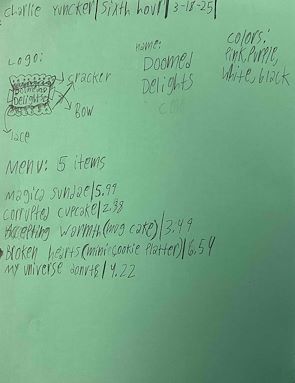 Charlie Yuncker | Sixth hour | 3-18-25 |
Logo:
cracker
Doomed
Delights
Bow
lace
name:
Doomed
Delights
colors:
Pink, Purple,
White, black
Menu: 5 items
magica sundae | 5.99
corrupted cupcake | 2.98
Accepting warmth (mug cake) | 3.49
Broken hearts (mini cookie Platter) | 6.54
my universe donuts | 4.22